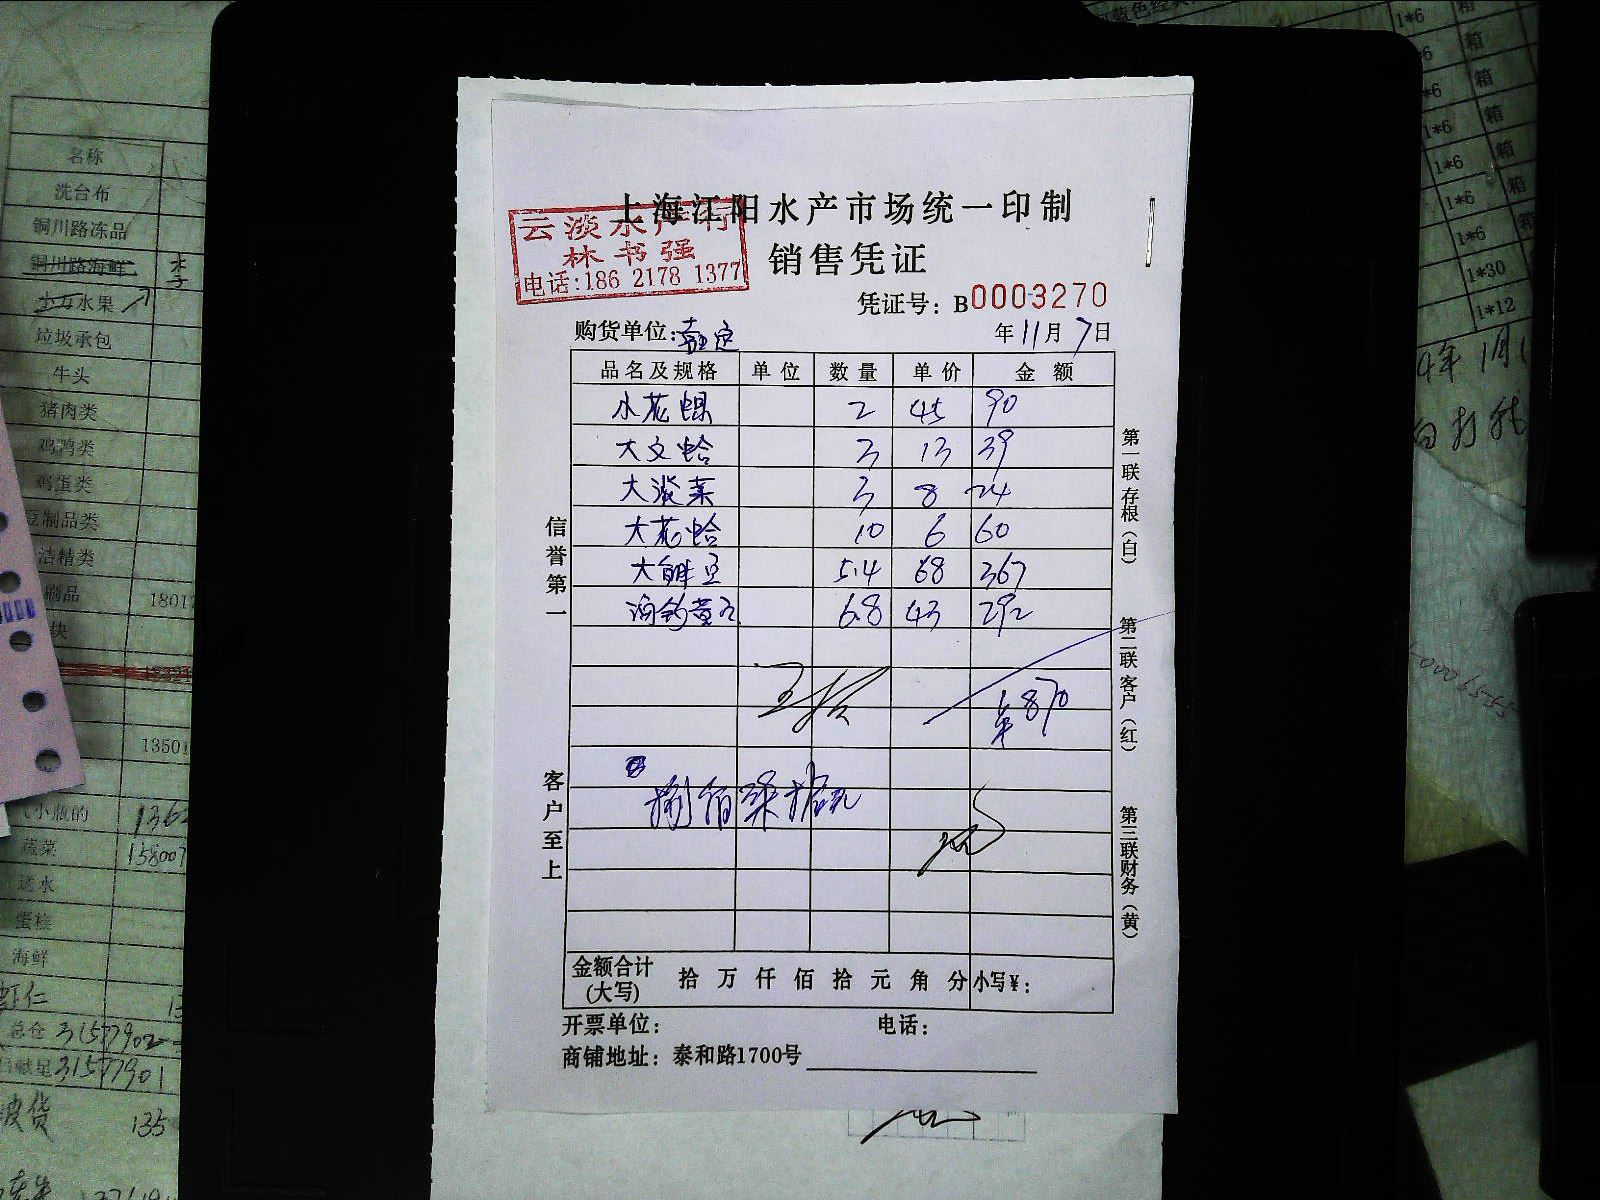 上海江阳水产市场统一印制
销售凭证
云淡水产行
林书强
电话:186 2178 1377
凭证号: B0003270
购货单位:
年11月7日
品名及规格 单位 数量 单价 金额
小花螺 2 45 90
大文蛤 3 13 39
大淡菜 3 8 24
大花蛤 10 6 60
大鲜豆 5.4 68 367
海钓黄 6.8 43 292
870
捌佰柒拾元
金额合计(大写) 拾 万 仟 佰 拾 元 角 分 小写¥:
开票单位: 电话:
商铺地址: 泰和路1700号
信誉第一
客户至上
第一联存根(白)
第二联客户(红)
第三联财务(黄)
名称
洗台布
铜川路冻品
铜川路海鲜
水果
垃圾承包
牛头
猪肉类
鸡鸭类
鸡蛋类
豆制品类
洁精类
刷品 1801
块
1350
小瓶的 136
蔬菜 158007
送水
蛋糕
海鲜
虾仁
总仓 31577902
献星 31577901
135
蓝色经典
1*6 箱
1*6 箱
1*6 箱
1*6 箱
1*6 箱
1*6 箱
1*6 箱
1*30
1*12